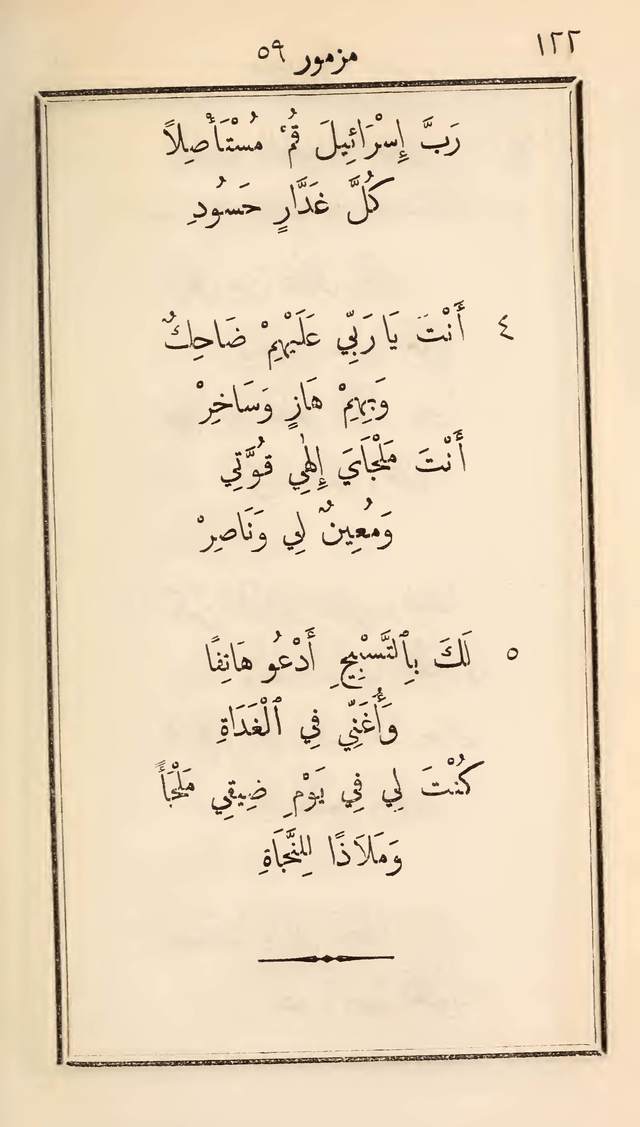 ١٢٢
مزمور ٥٩
رَبَّ إِسْرَائِيلَ قُمْ مُسْتَأْصِلاً
كُلَّ غَدَّارٍ حَسُودِ
٤ أَنْتَ يَا رَبِّي عَلَيْهِمْ ضَاحِكٌ
وَبِهِمْ هَازٍ وَسَاخِرْ
أَنْتَ مَلْجَايَ إِلٰهِي قُوَّتِي
وَمُعِينٌ لِي وَنَاصِرْ
٥ لَكَ بِٱلتَّسْبِيحِ أَدْعُو هَاتِفًا
وَأُغَنِّي فِي ٱلْغَدَاةِ
كُنْتَ لِي فِي يَوْمِ ضِيقِي مَلْجَأً
وَمَلَاذًا لِلنَّجَاةِ